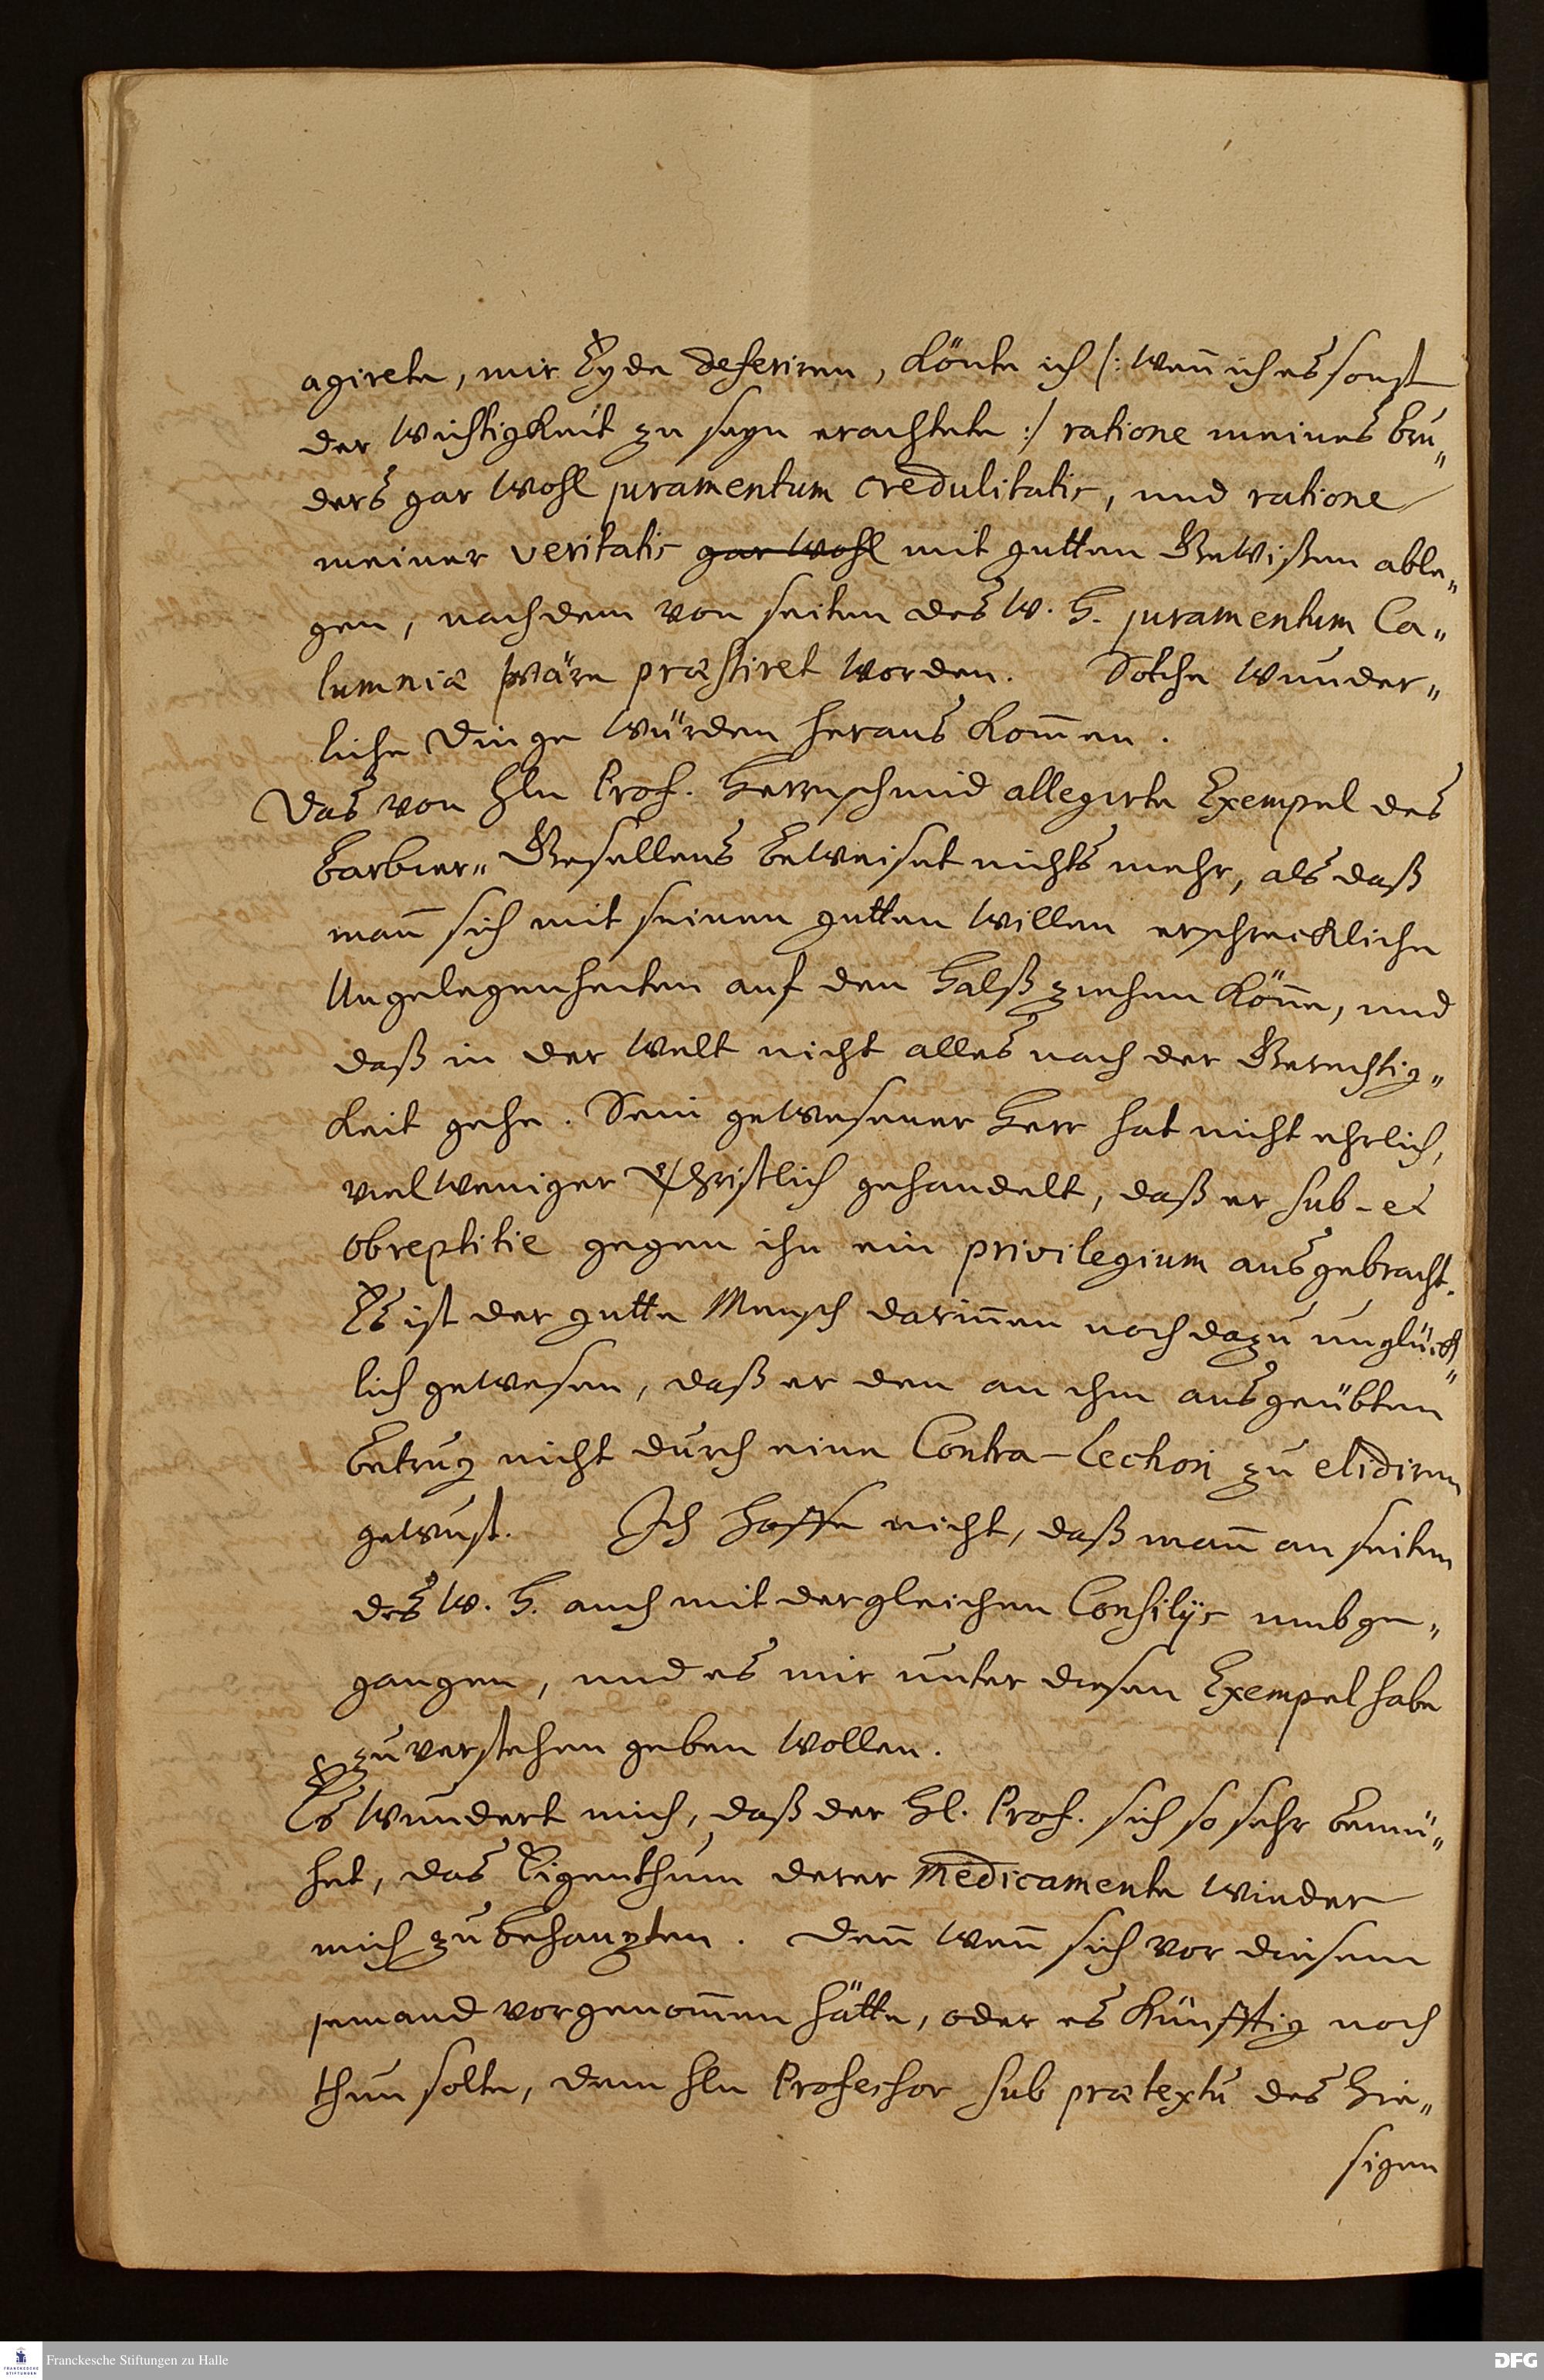 agirete, mir Eyde deferiren, könte ich /: wen̄ ich es sonst
der Wichtigkeit zu seyn erachtete :/ ratione meines Bru„
ders gar wohl juramentum credulitatis, und ratione
meiner veritatis gar wohl mit gutten Gewißen able„
gen, nachdem von seiten des W. H. juramentum Ca„
lumniæ wäre præstiret worden. Solche wunder„
liche Dinge würden heraus kom̄en.
Das von Hln Prof. Herrnschmid allegirte Exempel des
Barbier„ Gesellens beweiset nichts mehr, als daß
man̄ sich mit seinen gutten Willen erschreckliche
Ungelegenheiten auf den Halß ziehen kön̄e, und
daß in der Welt nicht alles nach der Gerechtig„
keit gehe. Sein gewesener Herr hat nicht ehrlich,
vielweniger Christlich gehandelt, daß er sub- et
obreptitie gegen ihn ein privilegium ausgebracht.
Es ist der gutte Mensch darin̄en noch dazu unglück„
lich gewesen, daß er den an ihm ausgeübten
Betrug nicht durch eine Contra-Lection zu elidiren
gewust. Ich hoffe nicht, daß man̄ an seiten
des W. H. auch mit dergleichen Consilijs umbge„
gangen, und es mir unter diesen Exempel habe
zuverstehen geben wollen.
Es wundert mich, daß der Hl. Prof. sich so sehr bemü„
het, das Eigenthum derer Medicamente wieder
mich zu behaupten. Den̄ wen̄ sich vor diesem
jemand vorgenom̄en hätte, oder es künfftig noch
thun solte, dem Hln Professor sub prætextu des hie„
sigen
Franckesche Stiftungen zu Halle
FRANCKESCHE STIFTUNGEN
DFG